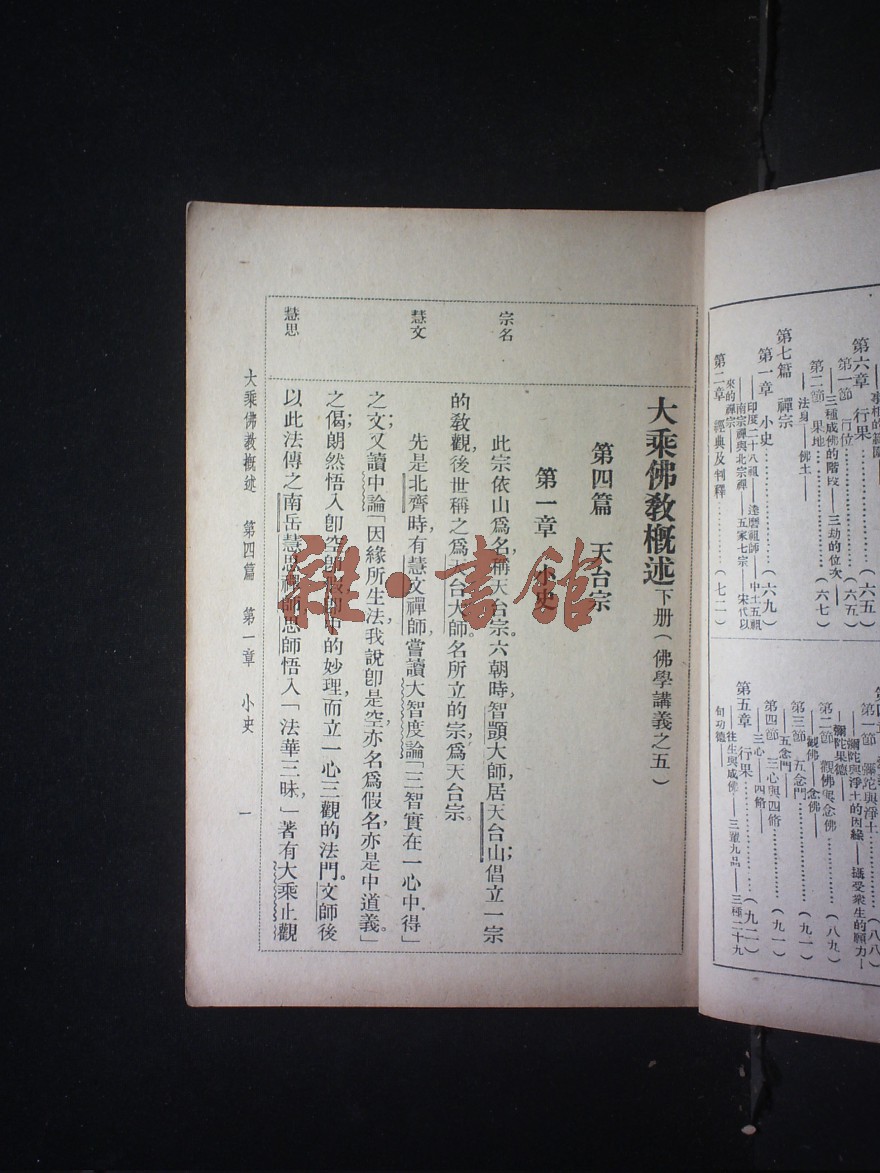 第六章 行果……………(六五)
第一節 行位……………(六五)
——三種成佛的階段——三劫的位次——
第二節 果地……………(六七)
——法身——佛土——
第七篇 禪宗
第一章 小史……………(六九)
——印度二十八祖——達磨祖師——中土五祖
南宗禪與北宗禪——五家七宗——宋代以
來的禪宗——
第二章 經典及判釋……………(七二)
第一節 彌陀與淨土……………(八八)
——彌陀與淨土的因緣——攝受衆生的願力—
—彌陀果德——
第二節 觀佛與念佛……………(八九)
——觀佛——念佛——
第三節 五念門……………(九一)
——五念門——
第四節 三心與四修……………(九一)
——三心——四修——
第五章 行果……………(九二)
——往生與成佛——三輩九品——三種二十九
句功德——
大乘佛教概述下册(佛學講義之五)
第四篇 天台宗
第一章 小史
宗名
此宗依山爲名,稱天台宗。六朝時,智顗大師,居天台山;倡立一宗
的敎觀,後世稱之爲天台大師。名所立的宗,爲天台宗。
慧文
先是北齊時,有慧文禪師,嘗讀大智度論「三智實在一心中得」
之文;又讀中論「因緣所生法,我說卽是空,亦名爲假名,亦是中道義。」
之偈;朗然悟入卽空卽假卽中的妙理,而立一心三觀的法門。文師後
慧思
以此法傳之南岳慧思禪師,思師悟入「法華三昧,」著有大乘止觀
大乘佛教概述 第四篇 第一章 小史 一
雜·書館